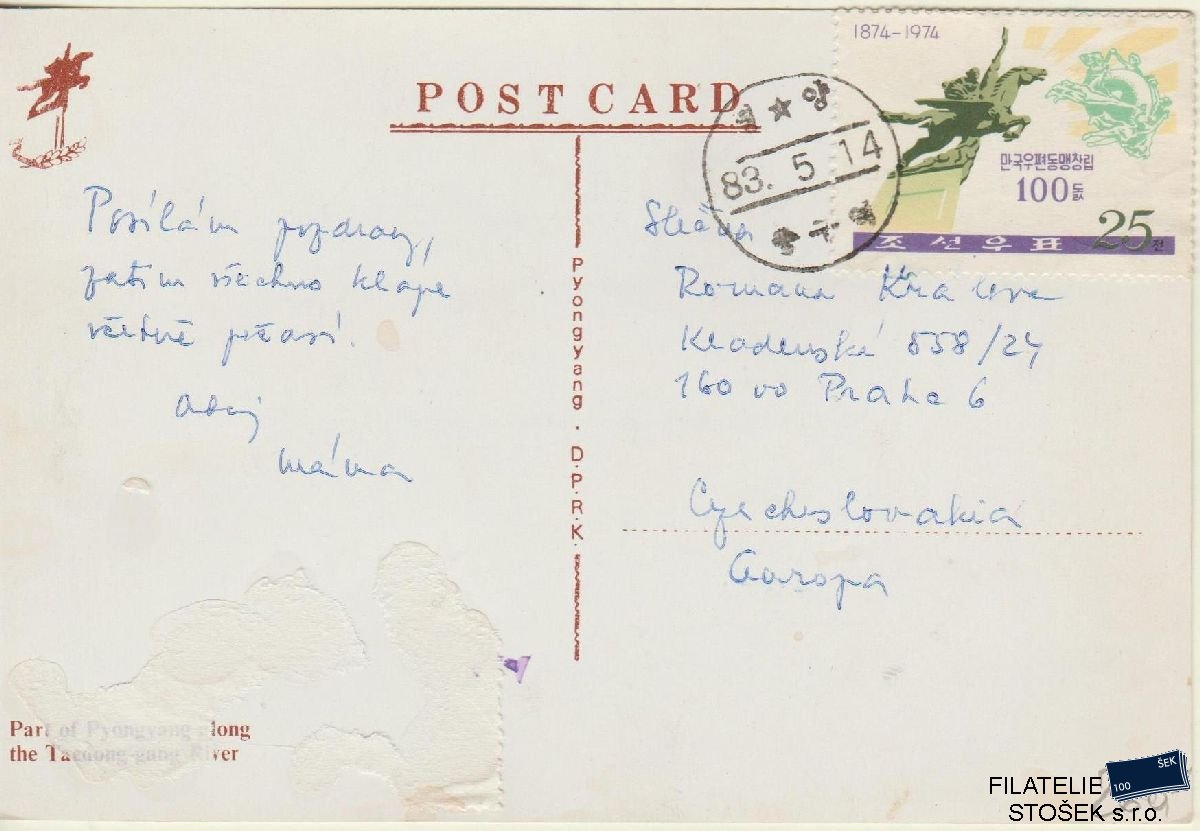 POST CARD
1874-1974
만국우편동맹창립
100돐
조선우표 25전
평★양
83. 5. 14
Posílám pozdravy,
zatím všechno klape
včetně počasí!
máma
Slečna
Romana
Kladenská 858/24
160 00 Praha 6
Czechoslovakia
Pyongyang · D.P.R.K.
Part of Pyongyang along
the Taedong-gang River
FILATELIE
STOŠEK s.r.o.
100
ŠEK